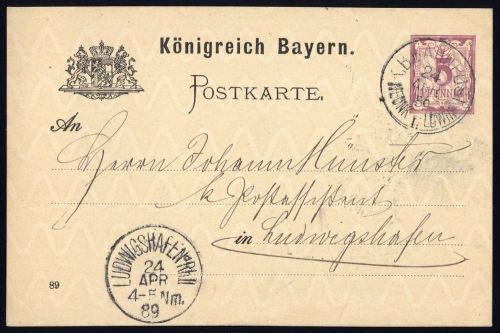 Königreich Bayern.
POSTKARTE.
5
PFENNIG
24
An
Herrn Johann Münster
k. Postassistent
in Ludwigshafen
LUDWIGSHAFEN RH II
24
APR
4-5 Nm.
89
89